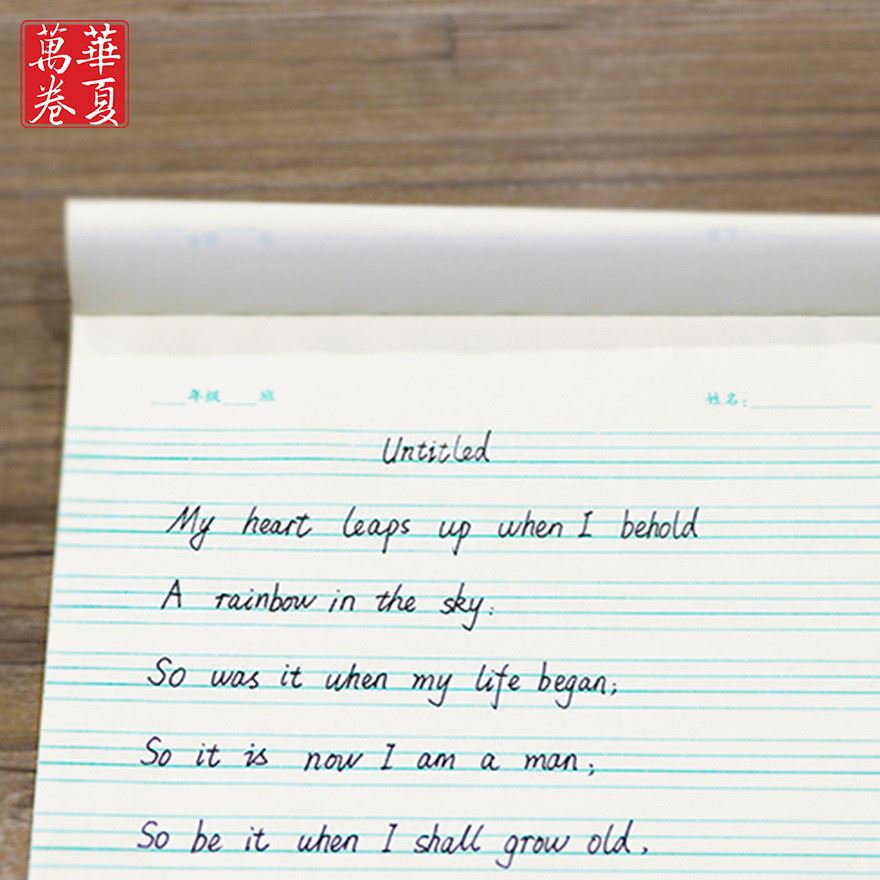 華夏
萬卷
____年级____班 姓名:____________
Untitled
My heart leaps up when I behold
A rainbow in the sky:
So was it when my life began;
So it is now I am a man;
So be it when I shall grow old,